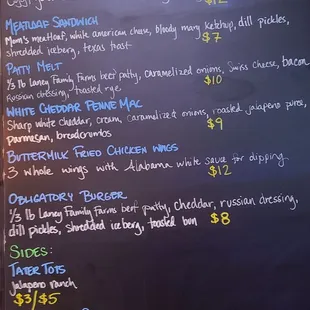 $12
MEATLOAF SANDWICH
Mom's meatloaf, white american cheese, bloody mary ketchup, dill pickles,
shredded iceberg, texas toast $7
PATTY MELT
1/3 lb Laney Family Farms beef patty, caramelized onions, Swiss cheese, bacon
Russian dressing, toasted rye $10
WHITE CHEDDAR PENNE MAC
Sharp white cheddar, cream, caramelized onions, roasted jalapeno,
parmesan, breadcrumbs $9
BUTTERMILK FRIED CHICKEN WINGS
3 whole wings with Alabama white sauce for dipping
$12
OBLIGATORY BURGER
1/3 lb Laney Family Farms beef patty, cheddar, russian dressing,
dill pickles, shredded iceberg, toasted bun $8
SIDES:
TATER TOTS
jalapeno ranch
$3/$5